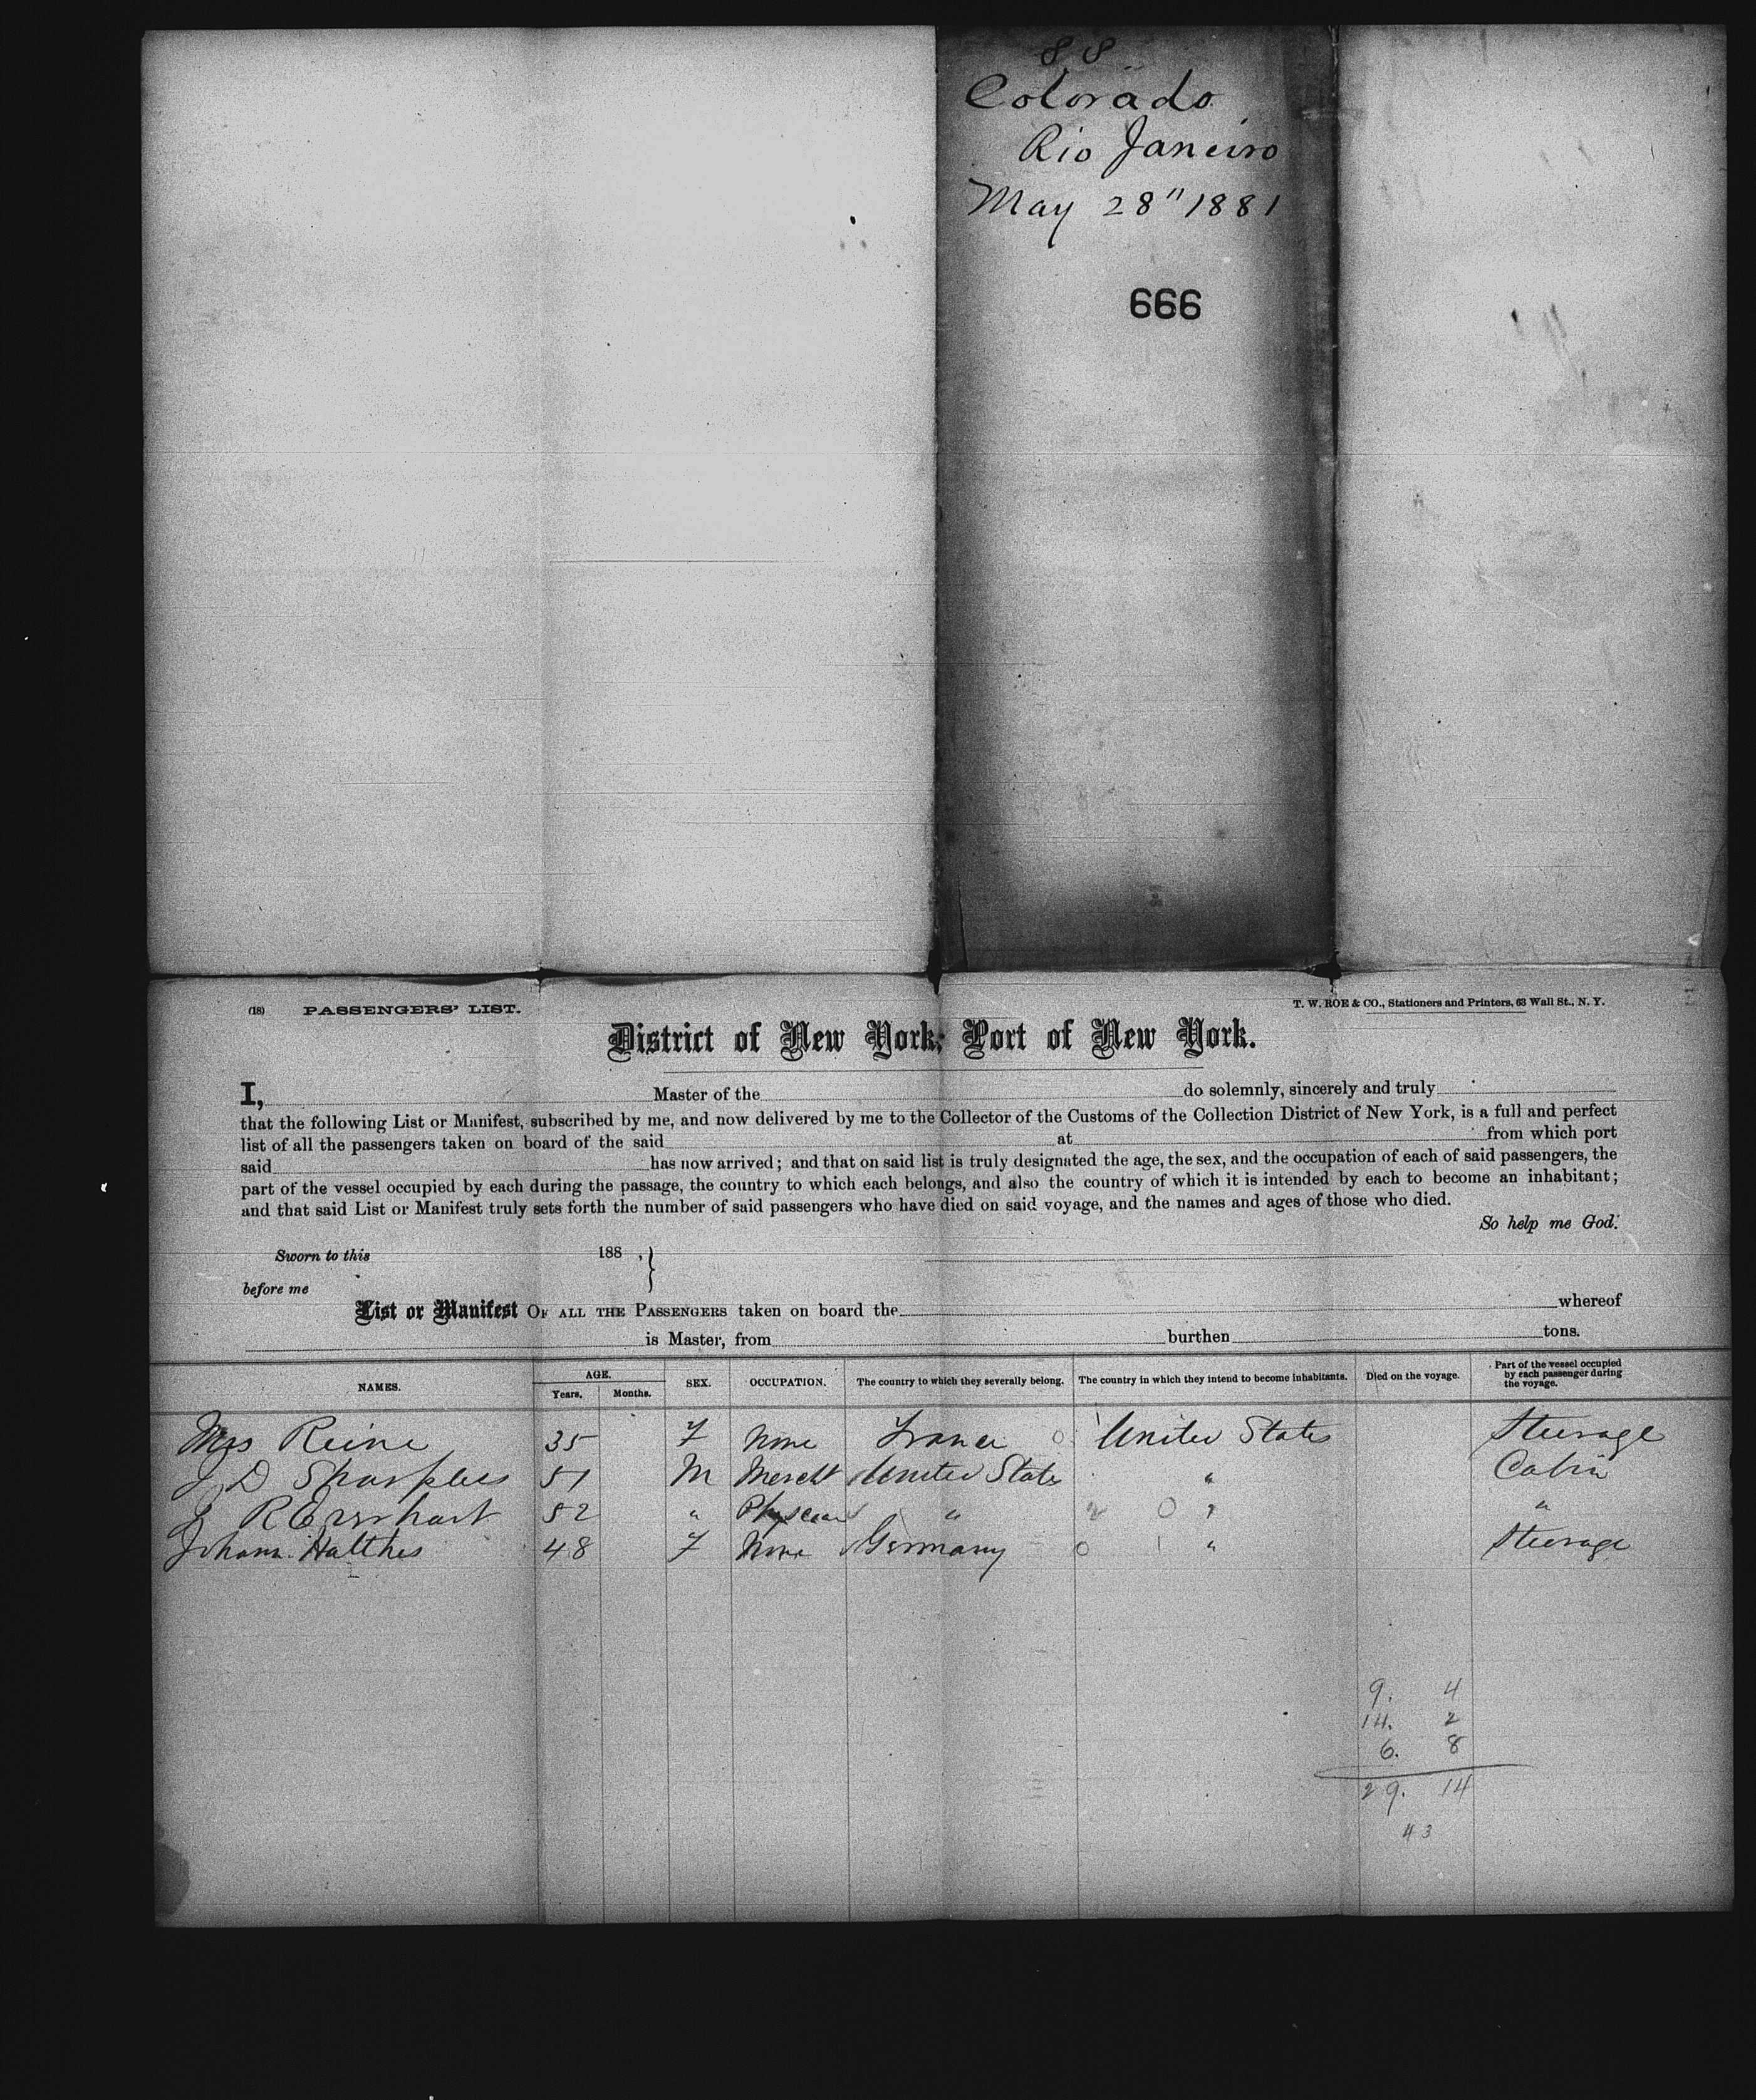 SS
Colorado
Rio Janeiro
May 28" 1881
666
(18) PASSENGERS' LIST. T. W. ROE & CO., Stationers and Printers, 63 Wall St., N. Y.
District of New York; Port of New York.
I, Master of the do solemnly, sincerely and truly
that the following List or Manifest, subscribed by me, and now delivered by me to the Collector of the Customs of the Collection District of New York, is a full and perfect
list of all the passengers taken on board of the said at from which port
said has now arrived; and that on said list is truly designated the age, the sex, and the occupation of each of said passengers, the
part of the vessel occupied by each during the passage, the country to which each belongs, and also the country of which it is intended by each to become an inhabitant;
and that said List or Manifest truly sets forth the number of said passengers who have died on said voyage, and the names and ages of those who died.
So help me God.
Sworn to this 188 , }
before me
List or Manifest OF ALL THE PASSENGERS taken on board the whereof
is Master, from burthen tons.
NAMES. AGE. Years. Months. SEX. OCCUPATION. The country to which they severally belong. The country in which they intend to become inhabitants. Died on the voyage. Part of the vessel occupied by each passenger during the voyage.
Mrs Reine 35 F None France 0 United States Steerage
J D Sharpless 51 M Mercht United State " Cabin
J R Earhart 52 " Physician " 0 " "
Johann Halthes 48 F None Germany 0 1 " Steerage
9. 4
14. 2
6. 8
29. 14
43